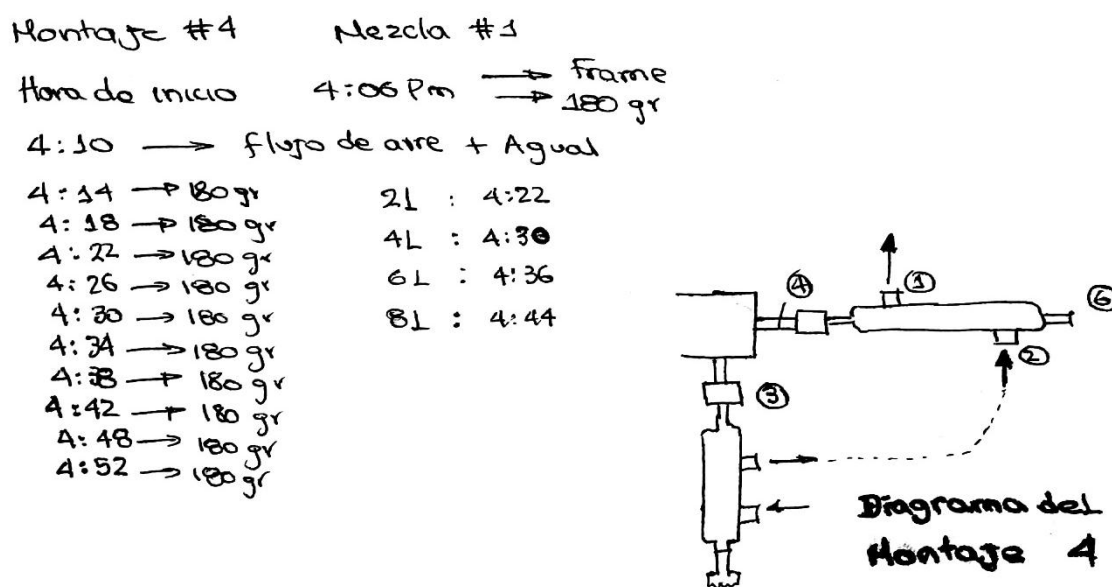 Montaje #4 Mezcla #1
Hora de inicio 4:06 Pm → Frame
→ 180 gr
4:10 → flujo de aire + Agual
4:14 → 180 gr
4:18 → 180 gr
4:22 → 180 gr
4:26 → 180 gr
4:30 → 180 gr
4:34 → 180 gr
4:38 → 180 gr
4:42 → 180 gr
4:48 → 180 gr
4:52 → 180 gr
2L : 4:22
4L : 4:30
6L : 4:36
8L : 4:44
①
④
⑥
②
③
Diagrama del
Montaje 4